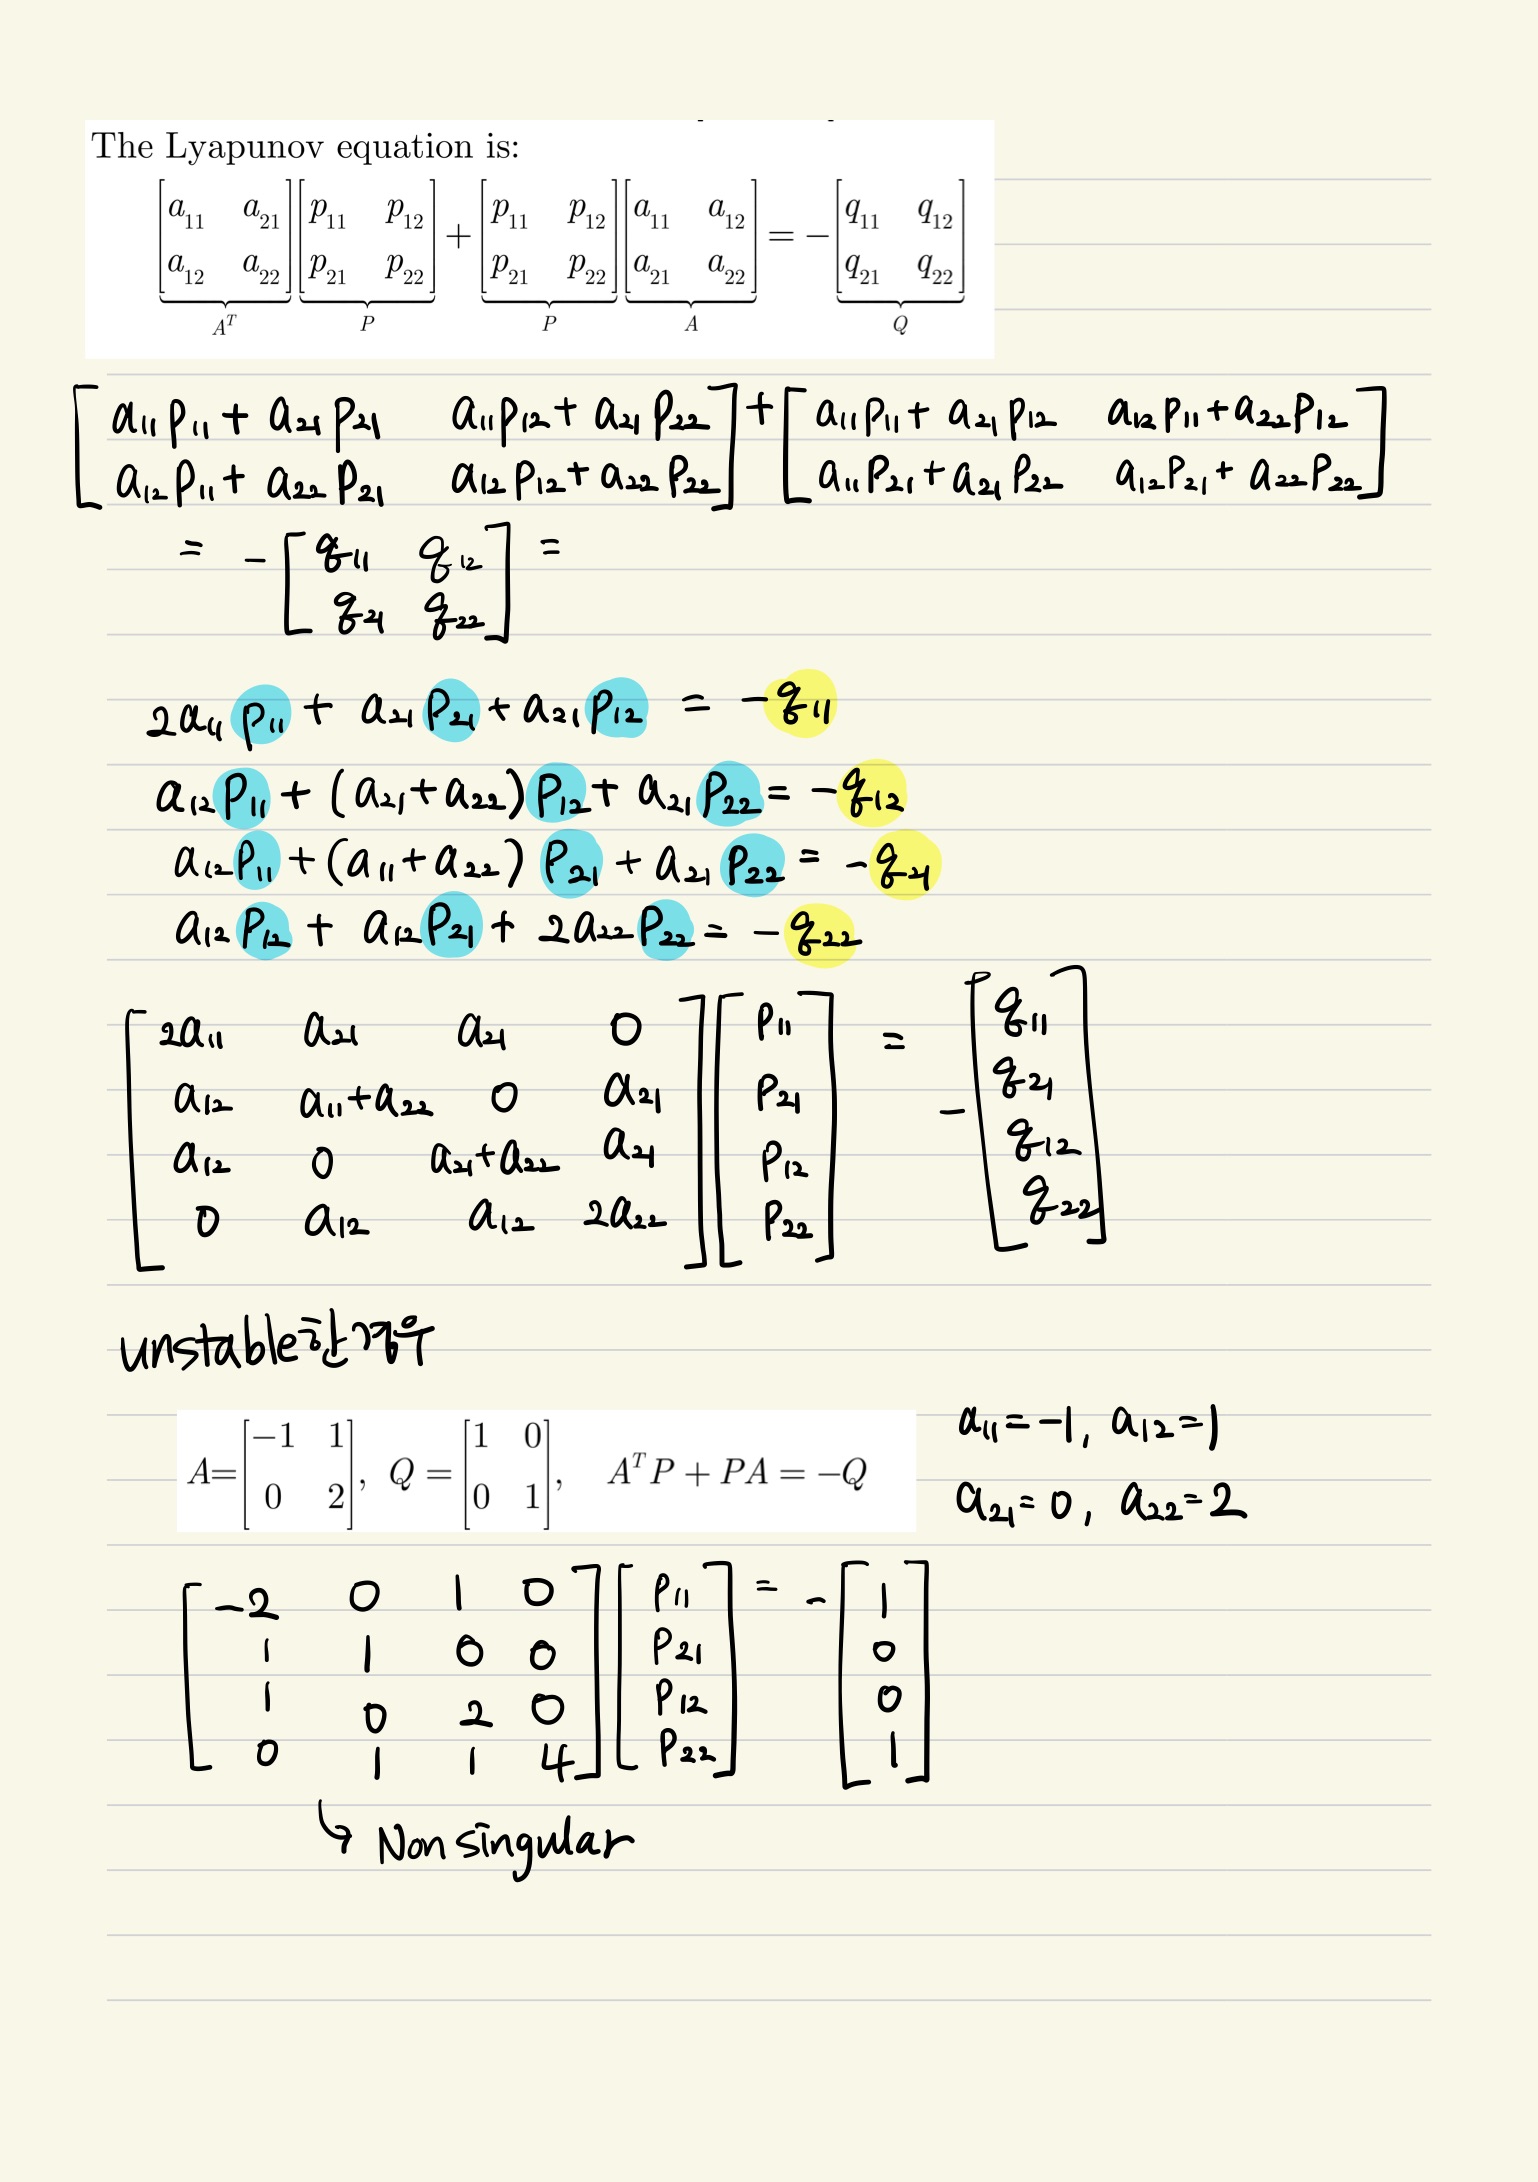 The Lyapunov equation is:
[a₁₁ a₂₁; a₁₂ a₂₂] [p₁₁ p₁₂; p₂₁ p₂₂] + [p₁₁ p₁₂; p₂₁ p₂₂] [a₁₁ a₁₂; a₂₁ a₂₂] = − [q₁₁ q₁₂; q₂₁ q₂₂]
Aᵀ P P A Q
[a₁₁p₁₁ + a₂₁p₂₁ a₁₁p₁₂ + a₂₁p₂₂] + [a₁₁p₁₁ + a₂₁p₁₂ a₁₂p₁₁ + a₂₂p₁₂]
[a₁₂p₁₁ + a₂₂p₂₁ a₁₂p₁₂ + a₂₂p₂₂] [a₁₁p₂₁ + a₂₁p₂₂ a₁₂p₂₁ + a₂₂p₂₂]
= − [q₁₁ q₁₂; q₂₁ q₂₂] =
2a₁₁p₁₁ + a₂₁p₂₁ + a₂₁p₁₂ = −q₁₁
a₁₂p₁₁ + (a₂₁+a₂₂)p₁₂ + a₂₁p₂₂ = −q₁₂
a₁₂p₁₁ + (a₁₁+a₂₂)p₂₁ + a₂₁p₂₂ = −q₂₁
a₁₂p₁₂ + a₁₂p₂₁ + 2a₂₂p₂₂ = −q₂₂
[2a₁₁ a₂₁ a₂₁ 0] [p₁₁] = − [q₁₁]
[a₁₂ a₁₁+a₂₂ 0 a₂₁] [p₂₁] [q₂₁]
[a₁₂ 0 a₂₁+a₂₂ a₂₁] [p₁₂] [q₁₂]
[0 a₁₂ a₁₂ 2a₂₂] [p₂₂] [q₂₂]
unstable한 경우
A=[−1 1; 0 2], Q = [1 0; 0 1], AᵀP + PA = −Q
a₁₁=−1, a₁₂=1
a₂₁=0, a₂₂=2
[−2 0 1 0] [p₁₁] = − [1]
[1 1 0 0] [p₂₁] [0]
[1 0 2 0] [p₁₂] [0]
[0 1 1 4] [p₂₂] [1]
↳ Nonsingular